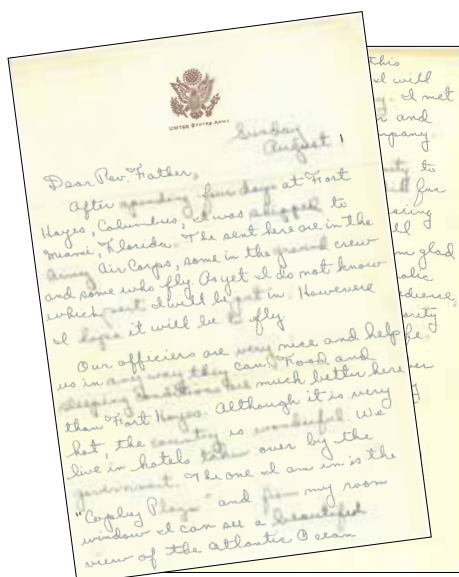 UNITED STATES ARMY
Sunday
August 1
Dear Rev. Father,
After spending four days at Fort
Hayes, Columbus, I was shipped to
Miami, Florida. The sent here are in the
Army Air Corps, some in the ground crew
and some who fly. As yet I do not know
which part I will be put in. Howevere
I hope it will be to fly.
Our officiers are very nice and help
us in any way they can. Food and
sleeping conditions are much better here
than Fort Hayes. Although it is very
hot, the country is wonderful. We
live in hotels taken over by the
government. The one I am in is the
"Copley Plaza" and from my room
window I can see a beautiful
view of the Atlantic Ocean
this
I will
I met
and
company
to
far
glad